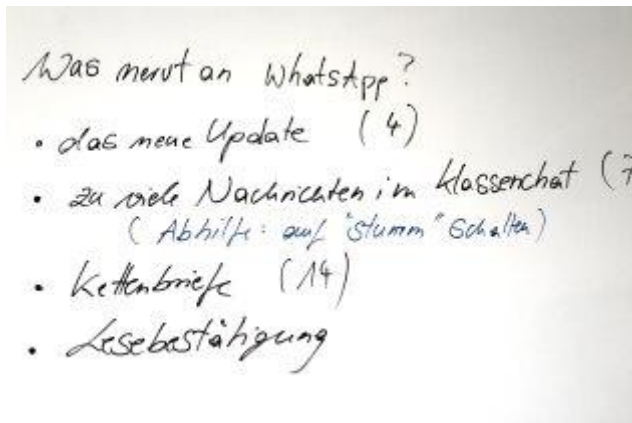 Was nervt an WhatsApp?
• das neue Update (4)
• zu viele Nachrichten im Klassenchat (7
( Abhilfe: auf "stumm" schalten)
• Kettenbriefe (14)
• Lesebestätigung